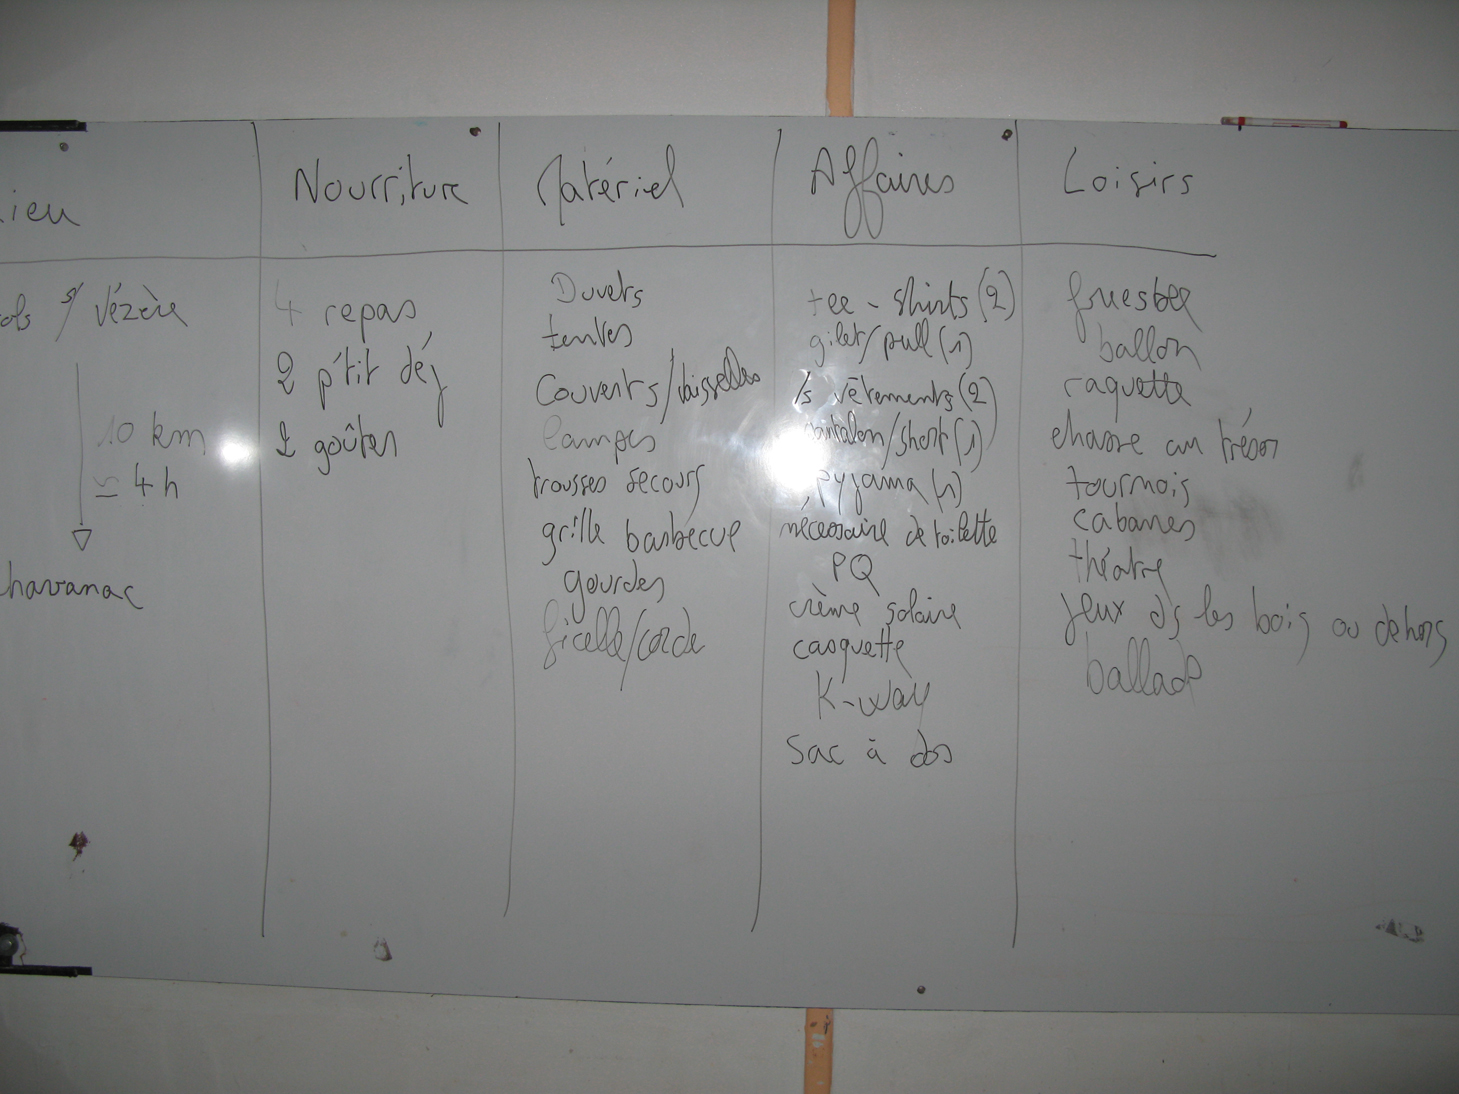 Nourriture
Matériel
Affaires
Loisirs
s/ Vézère
10 km
≃ 4 h
4 repas
2 p'tit déj
2 goûter
Duvets
tentes
Couverts/vaisselles
lampes
trousses secours
grille barbecue
gourdes
ficelle/corde
tee-shirts (2)
gilet/pull (1)
/s vêtements (2)
pantalon/short (1)
pyjama (1)
nécessaire de toilette
PQ
crème solaire
casquette
K-way
Sac à dos
ballon
raquette
chasse au trésor
tournois
cabanes
théatre
jeux ds les bois ou dehors
ballade